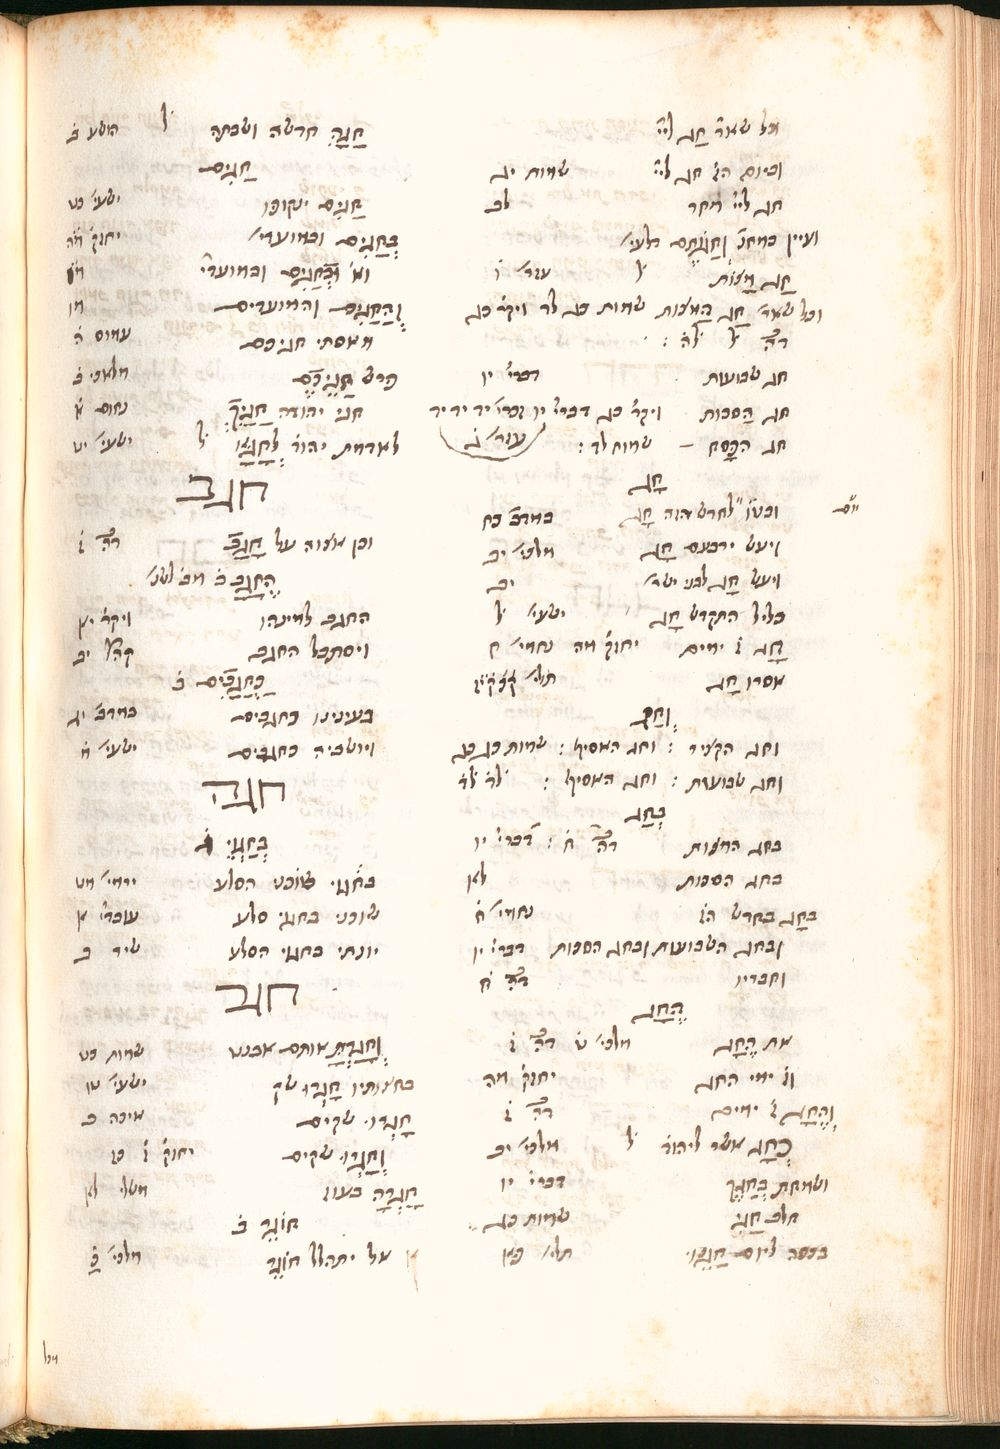 וכל שאר חַג ליי׳
וביום הז׳ חג ליי׳ שמות יג
חג ליי׳ מחר לב
ועיין במחב׳ וְחַגֹּתֶם מלעי׳
חַג מַצות ל׳ עזר׳ ו׳
וכל שאר׳ חַג הַמצות שמות כג לד ויקר׳ כג
דה״ ל׳ לה׳ :
חג שבועות דברי׳ יו
חג הַסכות ויקר׳ כג דברי׳ יו זכרי׳ יד יד יד
עזר׳ ג׳
חג הַפָּסח — שמות לד :
חָג
ובט״ו יום לחדש הזה חָג במדב׳ כח
ויעש ירבעם חָג מלכי׳ יב
ויעש חַג לבני ישר׳ יב
כליל התקדש חָג ישעי׳ ל׳
חָג ז׳ ימים יחזק׳ מה נחמי׳ ח
אסרו חַג תלי׳ קי״ח
וְחַג
וחג הקציר : וחג האסיף : שמות כג כג
וחג שבועות : וחג האסיף : לד לד
בְּחַג
בחג המצות דה״ ח׳ : דברי׳ יו
בחג הסכות לא
בחַג בחדש הז׳ נחמי׳ ח׳
ובחג השבועות ובחג הסכות דברי׳ יו
וחבריו דה״ ח׳
הֶחַג
את הֶחַג מלכי׳ ט׳ דה״ ז׳
וז׳ ימי החג יחזק׳ מה
וְהֶחַג ז׳ ימים דה״ ז׳
כֶּחָג אשר ליהוד׳ ל׳ מלכי׳ יב
ושמחת בְּחַגֶּךָ דברי׳ יו
חלב חַגִּי שמות כג
בכסה ליום חַגֵּנוּ תלי׳ פא
חַגָּהּ חדשה ושבתה ל׳ הושע ב׳
חַגִּים
חַגִּים ינקופו ישעי׳ כט
בְּחַגִּים ובמועדי׳ יחזק׳ מה
וא׳ וּבַחַגִּים ובמועדי׳ מו׳
וְהַחַגִּים והמועדים
מאסתי חגיכם עמוס ה׳
פרש חַגֵּיכֶם מלאכי ב׳
חגי יהודה חַגַּיִךְ נחום א׳
לאדמת יהוד׳ לְחָגָּא ל׳ ישעי׳ יט
חגב
וכן אצוה על חָגָב דה״ ז׳
הֶחָגָב ב׳
החגב למינהו ויקר׳ יא
ויסתבל החגב קהל׳ יב
כַּחֲגָבִים ב׳
בעינינו כחגבים במדב׳ יג
ויושביה כחגבים ישעי׳ מ׳
חגה
בְּחַגְוֵי ג׳
בחגוי שוכני הסלע ירמי׳ מט
שוכני בחגוי סלע עובדי׳ א
יונתי בחגוי הסלע שיר ב
חגר
וְחָגַרְתָּ אותם אבנט שמות כט
בחוצותיו חָגְרוּ שק ישעי׳ טו
חָגְרוּ שקים איכה ב
וְחָגְרוּ שקים יחזק׳ ז׳ כז
חָגְרָה בעוז משלי לא
חוֹגֵר ב׳
אל יתהלל חוֹגֵר מלכי׳ כ׳
וכל